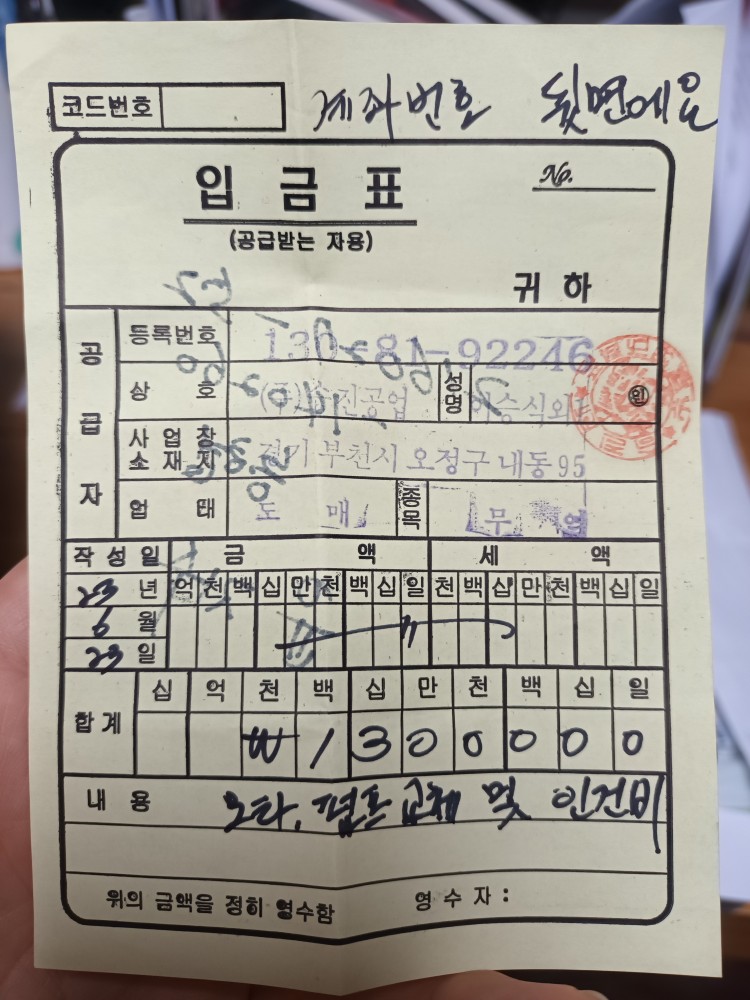 계좌번호 뒷면에요
코드번호
입금표
No.
(공급받는 자용)
귀하
공급자
등록번호 130-81-92246
상호 (주) 진공업 성명 이승식외 ㊞
사업장소재지 경기 부천시 오정구 내동 95
업태 도매 종목 무역
작성일 금액 세액
년 억 천 백 십 만 천 백 십 일 천 백 십 만 천 백 십 일
6 월 〃
일
십 억 천 백 십 만 천 백 십 일
합계 ₩ 1 3 0 0 0 0 0 0
내용 모타, 펌프 교체 및 인건비
위의 금액을 정히 영수함 영수자 :